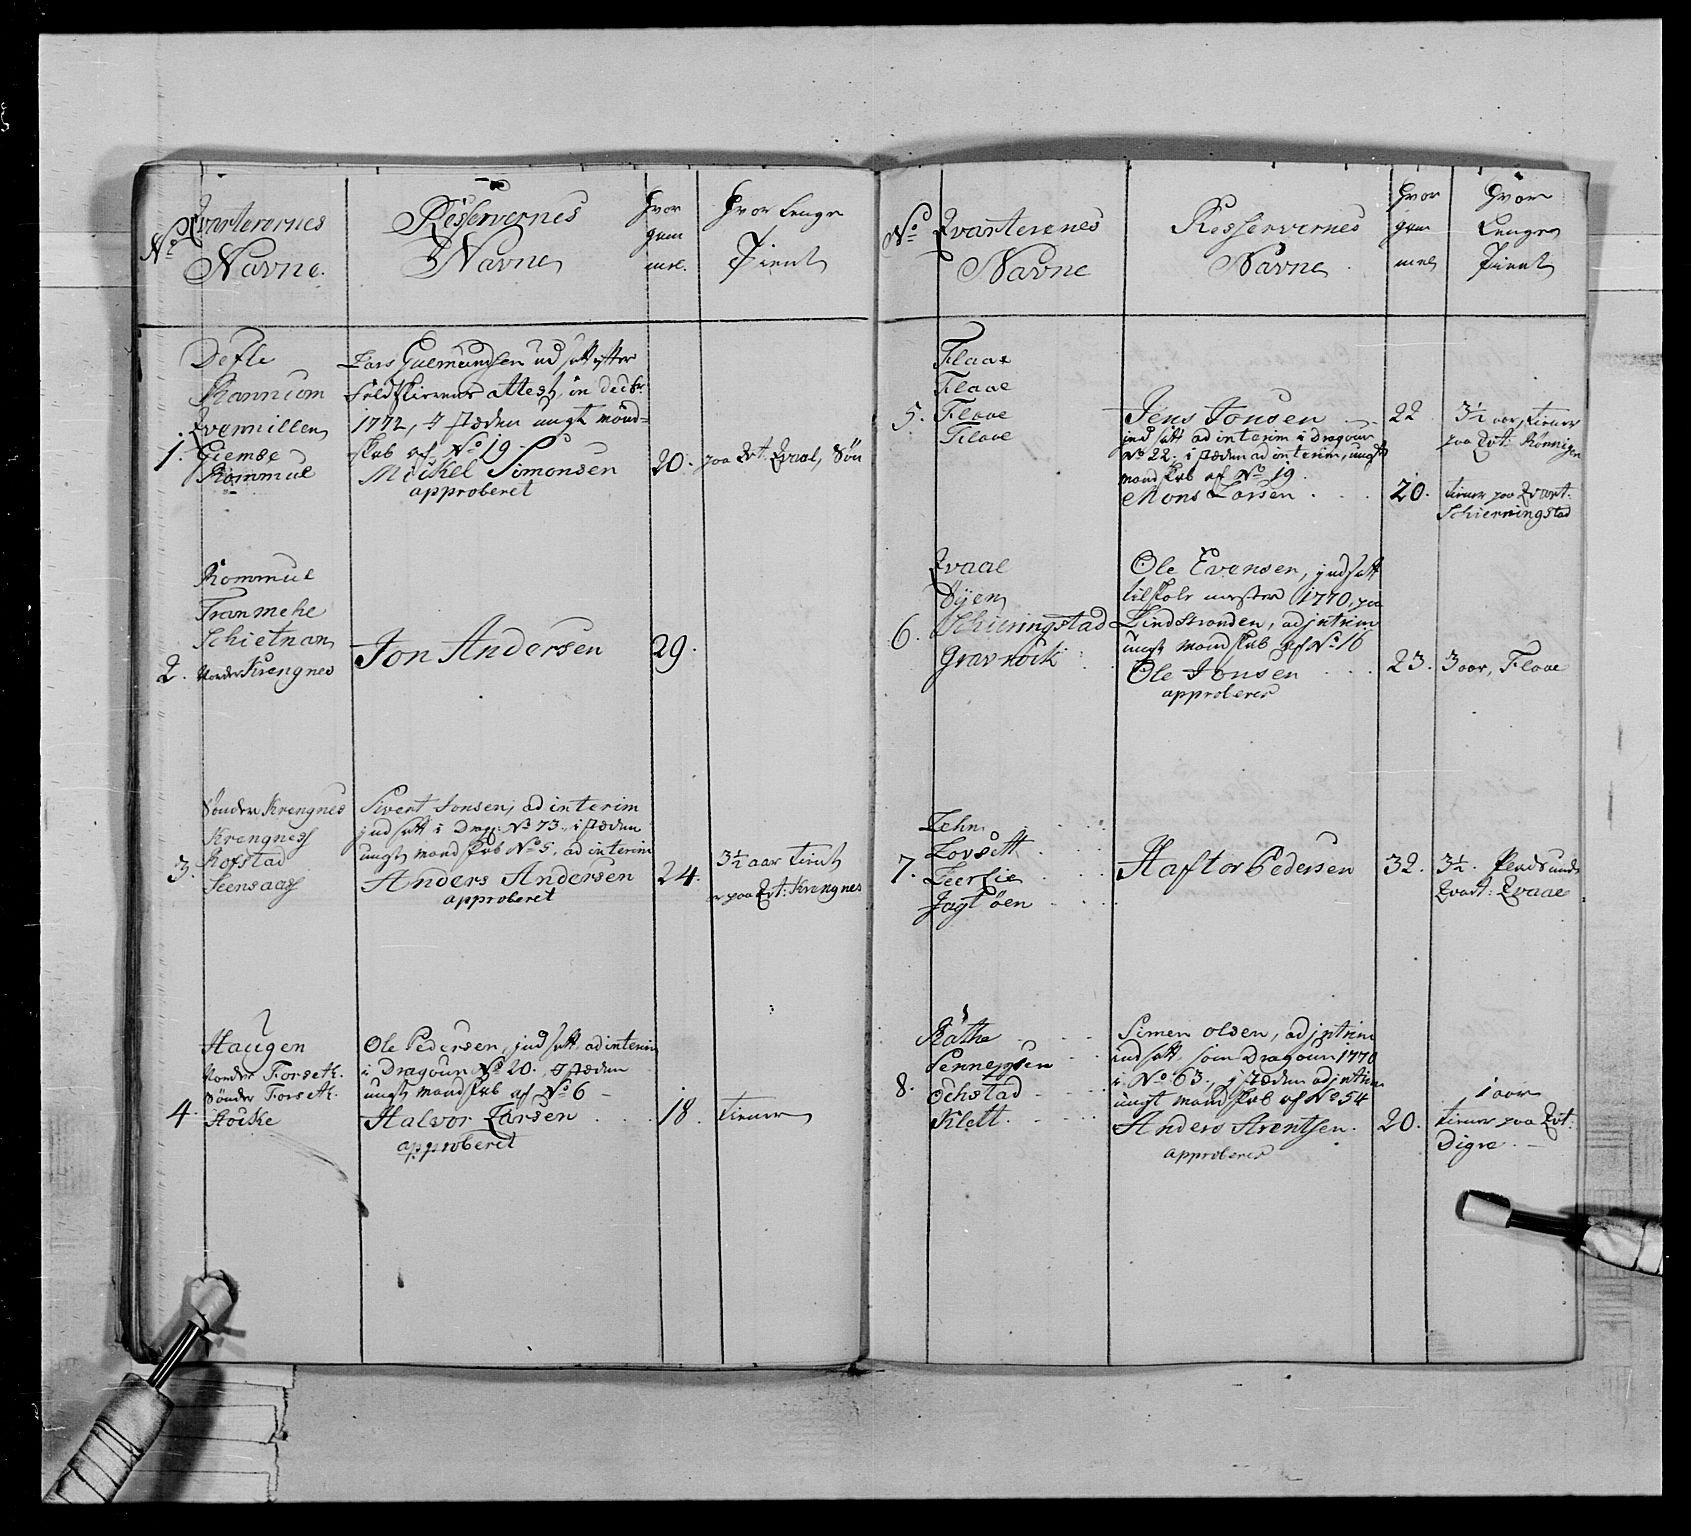 No
Qvarterernes
Navne.
Resservernes
Navne
hvor
gam
mel.
hvor Lenge
Tient
Defle
Rannium
Qvemillen
1. Giemse
Rommul
Lars Gulmundsen udsatt efter
attest in decbr
1772, I stæden ungt mand-
skab af No 19 -
Michel Simonsen
approberet
20.
paa Qvt. Qvaal, Søn
Rommul
Tranmehe
Schietnan
2. Norder Krengnes
Jon Andersen
29.
Sønder Krengnes
Krengness
Rofstad
3. Seensaass
Sivert Jonsen, ad interim
indsatt i Drag: No 73, i stæden
ungt mandskab No 5, ad interim
Anders Andersen
approberet
24.
3½ aar tient
paa Qvt: Krengnes
Haugen
Norder Forseth.
Sønder Forseth.
4. Støcke
Ole Pedersen, indsatt ad interim
i Dragoun No 20. I stæden
ungt mandskab af No 6 -
Halvor Larsen
approberet
18.
tiener
No
Qvarterenes
Navne
Resservernes
Navne
hvor
gam
mel
hvor
Lenge
Tient
Flaae
Flaae
5. Flaae
Flaae
Jens Jonsen
indsatt ad interim i Dragoun
No 22. i stæden ad interim, ungt
mandskab af No 19.
Mons Larsen
22
20.
3½ aar, tiener
paa Qvt. Rønnigen
tiener paa Qvart:
Schierningstad
Qvaal
Øyen
6. Schierningstad
Gravrock
Ole Evensen, indsatt
til skole mester 1770, paa
Lindstranden, ad intrim
ungt mandskab af No 16
Ole Jonsen
approberes
23.
3 aar, Flaae
Lehn
Lovsett
7. Leerlie
Jagtøen
Haftor Pedersen
32.
3½.
Qvart: Qvaal
Røthe
Penneppen
8. Øchstad
Klett
Simen Olsen, ad intrim
indsatt som Dragoun 1770
i No 63, i stæden ad intrim
ungt mandskab af No 54
Anders Arentsen.
approberes
20.
1 aar
tiener paa Qvt:
Digre